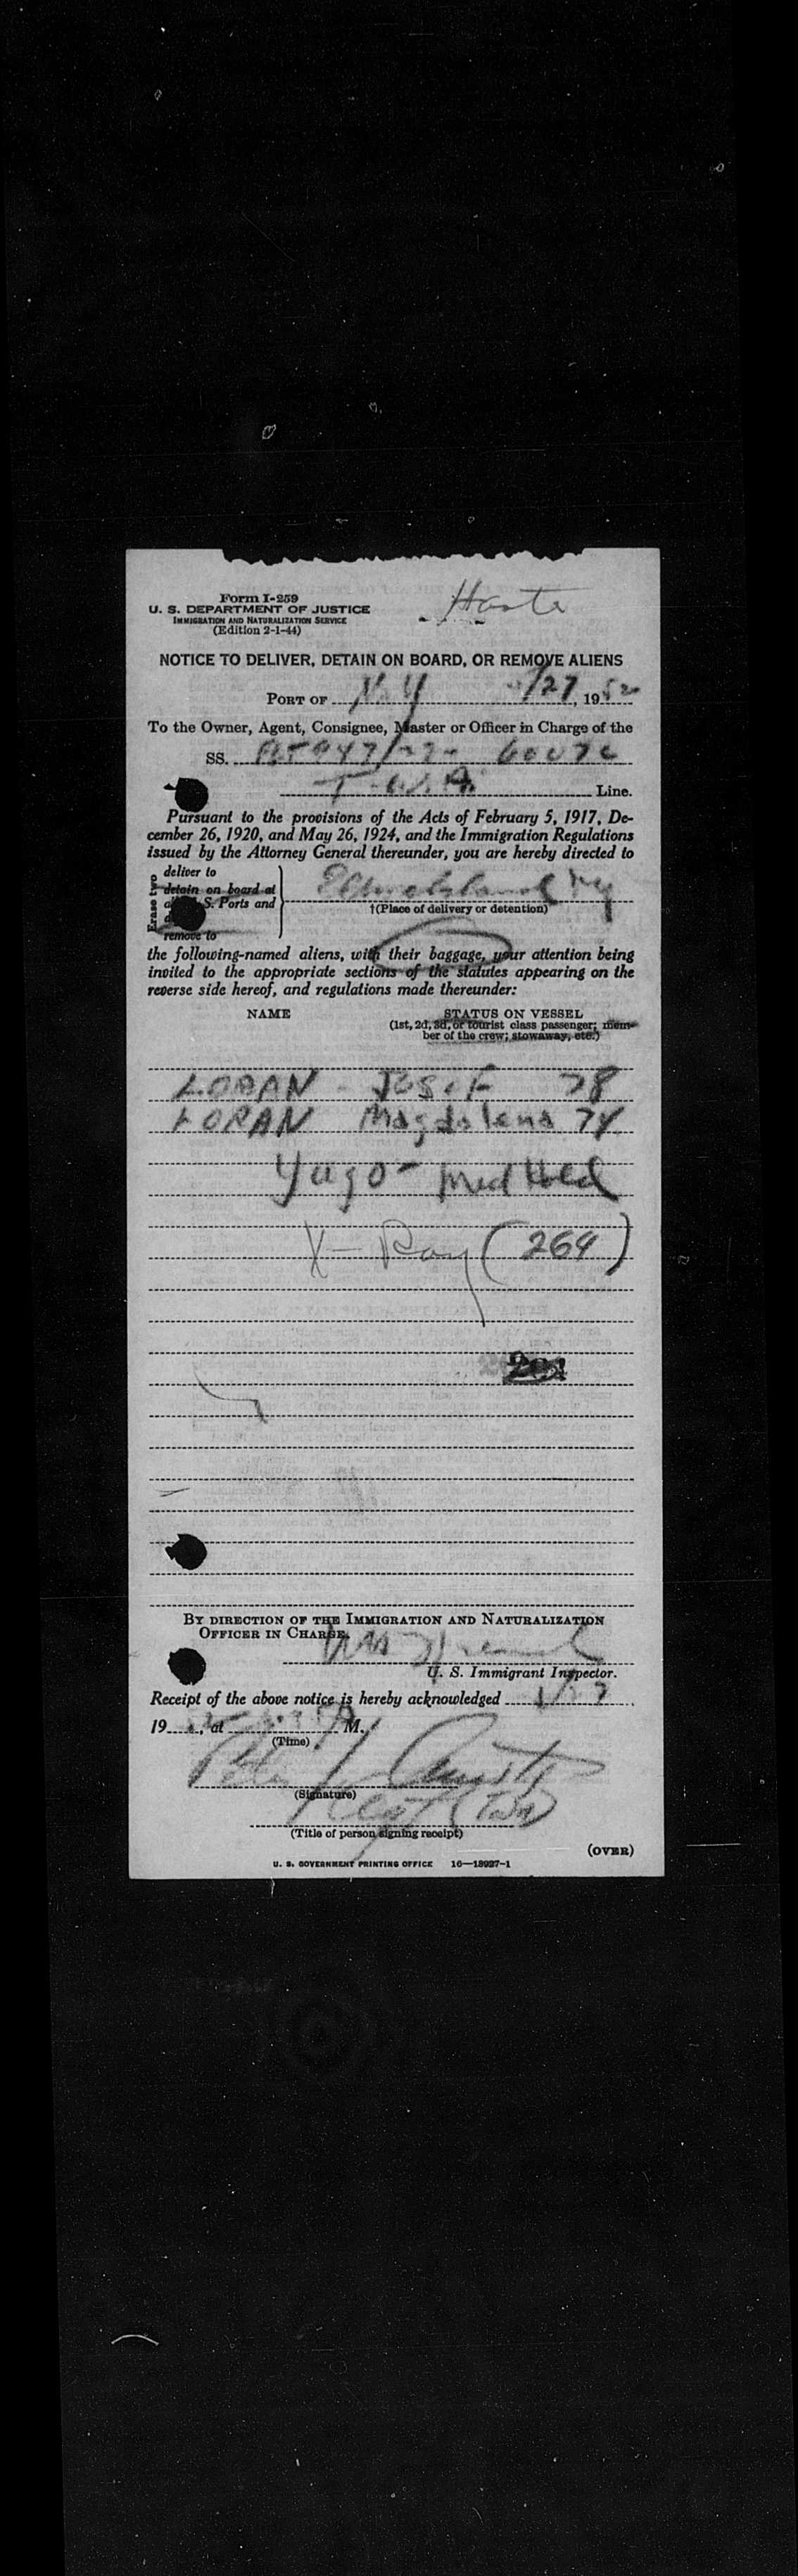 Form I-259
U. S. DEPARTMENT OF JUSTICE
IMMIGRATION AND NATURALIZATION SERVICE
(Edition 2-1-44)
NOTICE TO DELIVER, DETAIN ON BOARD, OR REMOVE ALIENS
PORT OF N.Y. /27, 1952
To the Owner, Agent, Consignee, Master or Officer in Charge of the
SS.
Line.
Pursuant to the provisions of the Acts of February 5, 1917, De-
cember 26, 1920, and May 26, 1924, and the Immigration Regulations
issued by the Attorney General thereunder, you are hereby directed to
Erase two
deliver to
detain on board at
S. Ports and
remove to
†(Place of delivery or detention)
the following-named aliens, with their baggage, your attention being
invited to the appropriate sections of the statutes appearing on the
reverse side hereof, and regulations made thereunder:
NAME STATUS ON VESSEL
(1st, 2d, 3d, or tourist class passenger; mem-
ber of the crew; stowaway, etc.)
LORAN - Josef 78
LORAN Magdalena 74
Yugo - Med Held
X-Ray (264)
BY DIRECTION OF THE IMMIGRATION AND NATURALIZATION
OFFICER IN CHARGE.
U. S. Immigrant Inspector.
Receipt of the above notice is hereby acknowledged
19 , at M.
(Time)
(Signature)
(Title of person signing receipt)
(OVER)
U. S. GOVERNMENT PRINTING OFFICE 16—18927-1